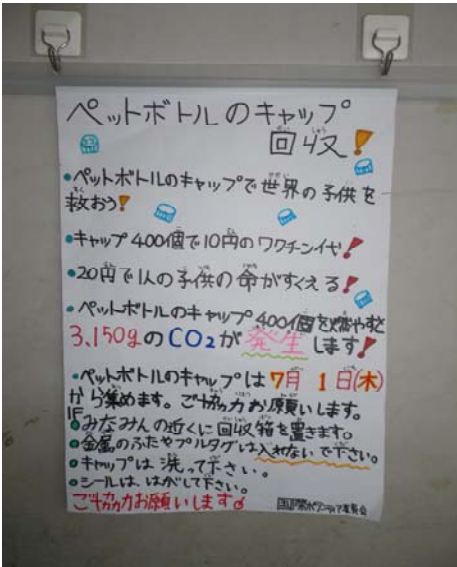 ペットボトルのキャップ
回収!
•ペットボトルのキャップで世界の子供を
救おう!
•キャップ400個で10円のワクチン代!
•20円で1人の子供の命がすくえる!
•ペットボトルのキャップ400個を燃やすと
3,150gのCO2が発生します!
•ペットボトルのキャップは7月 1日(木)
から集めます。ご協力お願いします。
1F
•みなみんの近くに回収箱を置きます。
•金属のふたやプルタグは入れないで下さい。
•キャップは洗って下さい。
•シールは、はがして下さい。
ご協力お願いします
ボランティア委員会